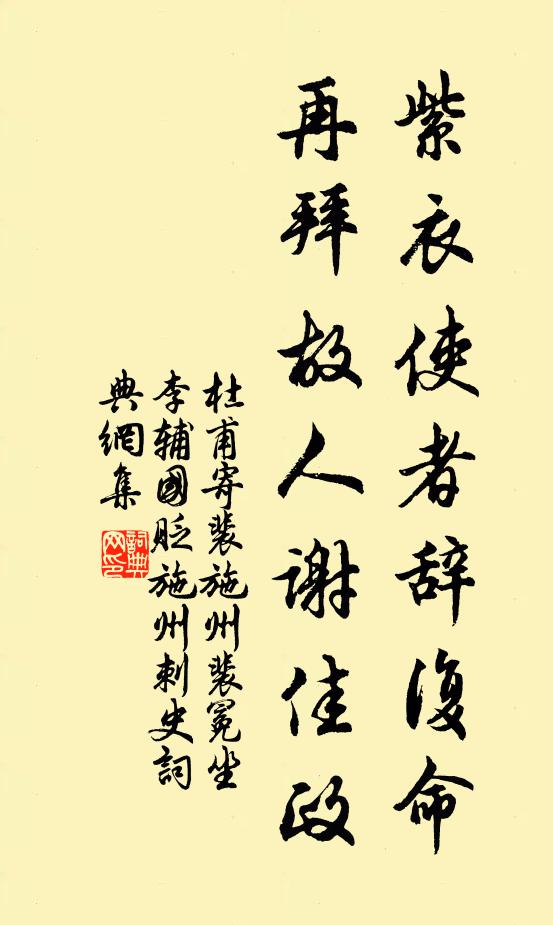 紫衣使者辞復命
再拜故人謝佳政
杜甫寄裴施州裴冕坐
李輔國貶施州刺史詞
典網集
詞典
网印